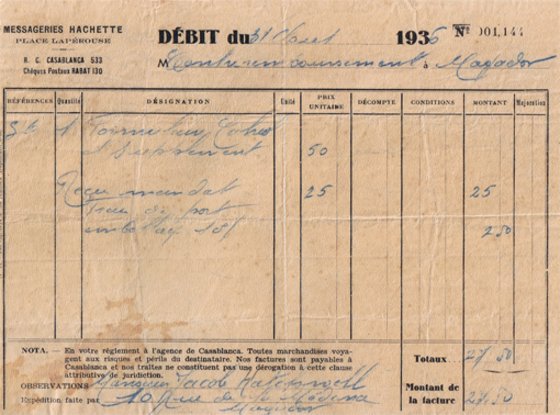 MESSAGERIES HACHETTE
PLACE LAPÉROUSE
R. C. CASABLANCA 533
Chèques Postaux RABAT 130
DÉBIT du 31 1935 № 001,144
M à Mogador
RÉFÉRENCES Quantité DÉSIGNATION Unité PRIX UNITAIRE DÉCOMPTE CONDITIONS MONTANT Majoration
1
et supplément 50
Reçu mandat 25 25
Frais de port
emballage 10% 2 50
NOTA. — En votre règlement à l'agence de Casablanca. Toutes marchandises voya-
gent aux risques et périls du destinataire. Nos factures sont payables à
Casablanca et nos traites ne constituent pas une dérogation à cette clause
attributive de juridiction.
Totaux 27 50
OBSERVATIONS Monsieur Jacob
Expédition faite par 10 Rue de la
Mogador
Montant de
la facture 27.50